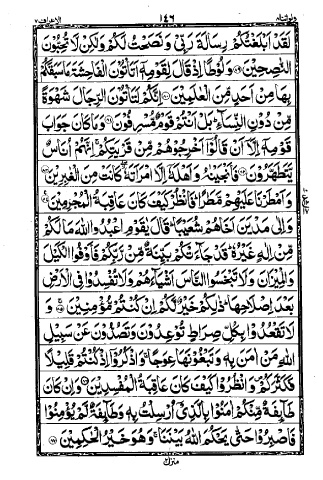 ولواننا ٨ ١٤٦ الاعراف ٧
لَقَدْ اَبْلَغْتُكُمْ رِسَالَةَ رَبِّيْ وَنَصَحْتُ لَكُمْ وَلٰكِنْ لَّا تُحِبُّوْنَ
النّٰصِحِيْنَ ۞ وَلُوْطًا اِذْ قَالَ لِقَوْمِهٖٓ اَتَاْتُوْنَ الْفَاحِشَةَ مَا سَبَقَكُمْ
بِهَا مِنْ اَحَدٍ مِّنَ الْعٰلَمِيْنَ ۞ اِنَّكُمْ لَتَاْتُوْنَ الرِّجَالَ شَهْوَةً
مِّنْ دُوْنِ النِّسَآءِ ؕ بَلْ اَنْتُمْ قَوْمٌ مُّسْرِفُوْنَ ۞ وَمَا كَانَ جَوَابَ
قَوْمِهٖٓ اِلَّآ اَنْ قَالُوْٓا اَخْرِجُوْهُمْ مِّنْ قَرْيَتِكُمْ ۚ اِنَّهُمْ اُنَاسٌ
يَّتَطَهَّرُوْنَ ۞ فَاَنْجَيْنٰهُ وَاَهْلَهٗٓ اِلَّا امْرَاَتَهٗ ۖ كَانَتْ مِنَ الْغٰبِرِيْنَ ۞
وَاَمْطَرْنَا عَلَيْهِمْ مَّطَرًا ؕ فَانْظُرْ كَيْفَ كَانَ عَاقِبَةُ الْمُجْرِمِيْنَ ۞
وَاِلٰى مَدْيَنَ اَخَاهُمْ شُعَيْبًا ؕ قَالَ يٰقَوْمِ اعْبُدُوا اللّٰهَ مَا لَكُمْ
مِّنْ اِلٰهٍ غَيْرُهٗ ؕ قَدْ جَآءَتْكُمْ بَيِّنَةٌ مِّنْ رَّبِّكُمْ فَاَوْفُوا الْكَيْلَ
وَالْمِيْزَانَ وَلَا تَبْخَسُوا النَّاسَ اَشْيَآءَهُمْ وَلَا تُفْسِدُوْا فِى الْاَرْضِ
بَعْدَ اِصْلَاحِهَا ؕ ذٰلِكُمْ خَيْرٌ لَّكُمْ اِنْ كُنْتُمْ مُّؤْمِنِيْنَ ۞ وَ
لَا تَقْعُدُوْا بِكُلِّ صِرَاطٍ تُوْعِدُوْنَ وَتَصُدُّوْنَ عَنْ سَبِيْلِ
اللّٰهِ مَنْ اٰمَنَ بِهٖ وَتَبْغُوْنَهَا عِوَجًا ۚ وَاذْكُرُوْٓا اِذْ كُنْتُمْ قَلِيْلًا
فَكَثَّرَكُمْ ۪ وَانْظُرُوْا كَيْفَ كَانَ عَاقِبَةُ الْمُفْسِدِيْنَ ۞ وَاِنْ كَانَ
طَآئِفَةٌ مِّنْكُمْ اٰمَنُوْا بِالَّذِيْٓ اُرْسِلْتُ بِهٖ وَطَآئِفَةٌ لَّمْ يُؤْمِنُوْا
فَاصْبِرُوْا حَتّٰى يَحْكُمَ اللّٰهُ بَيْنَنَا ۚ وَهُوَ خَيْرُ الْحٰكِمِيْنَ ۞
منزل